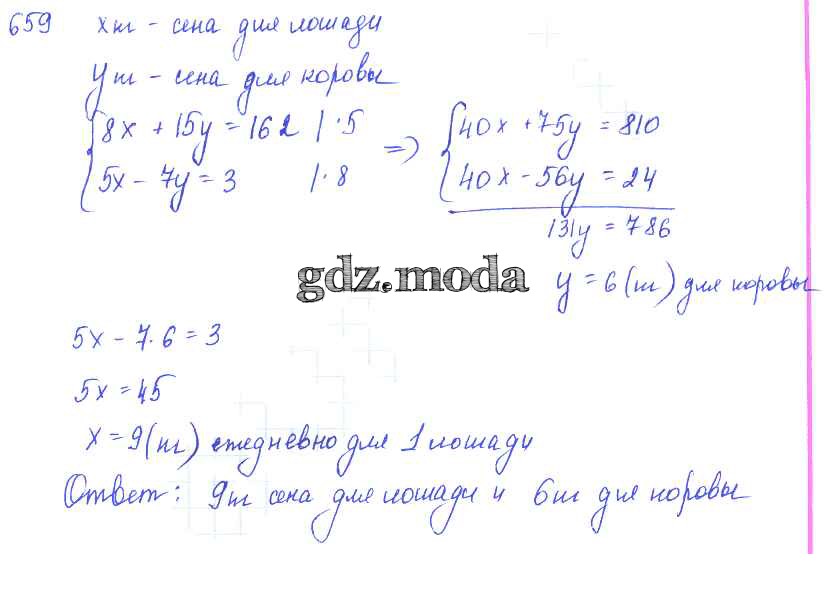 659 x кг – сена для лошади
y кг – сена для коровы
{ 8x + 15y = 162 | · 5
5x – 7y = 3 | · 8
=> { 40x + 75y = 810
40x – 56y = 24
131y = 786
gdz.moda
y = 6 (кг) для коровы
5x – 7 · 6 = 3
5x = 45
x = 9 (кг) ежедневно для 1 лошади
Ответ: 9 кг сена для лошади и 6 кг для коровы